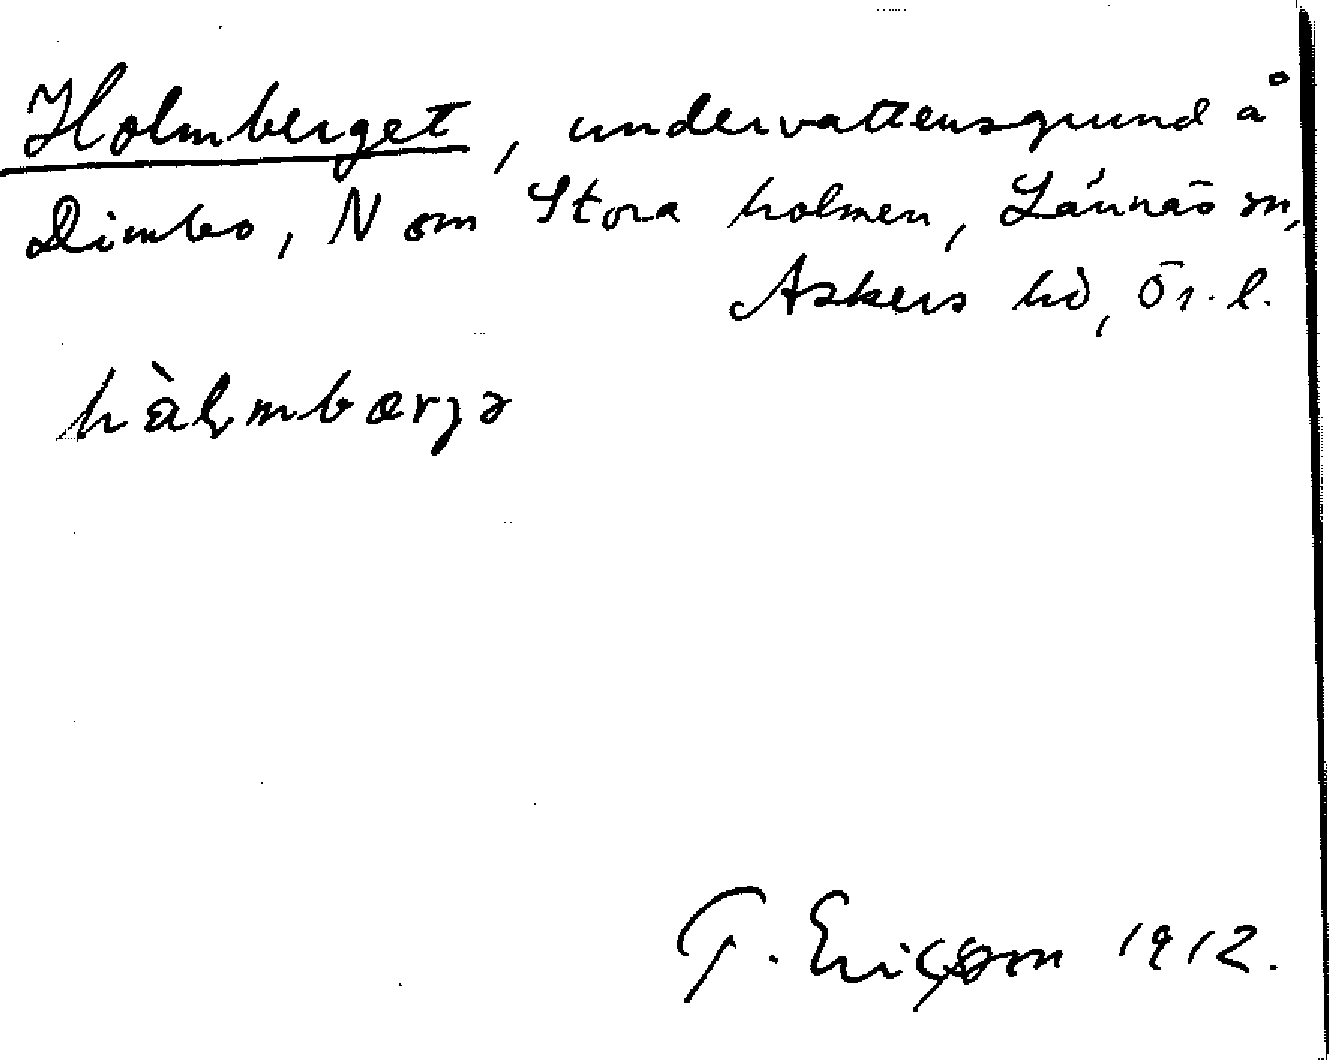 Holmberget, undervattensgrund å
Dimbo, N om Stora holmen, Lännäs sn,
Askers hd, Ör. l.
hàlmbærjə
G. Ericsson 1912.